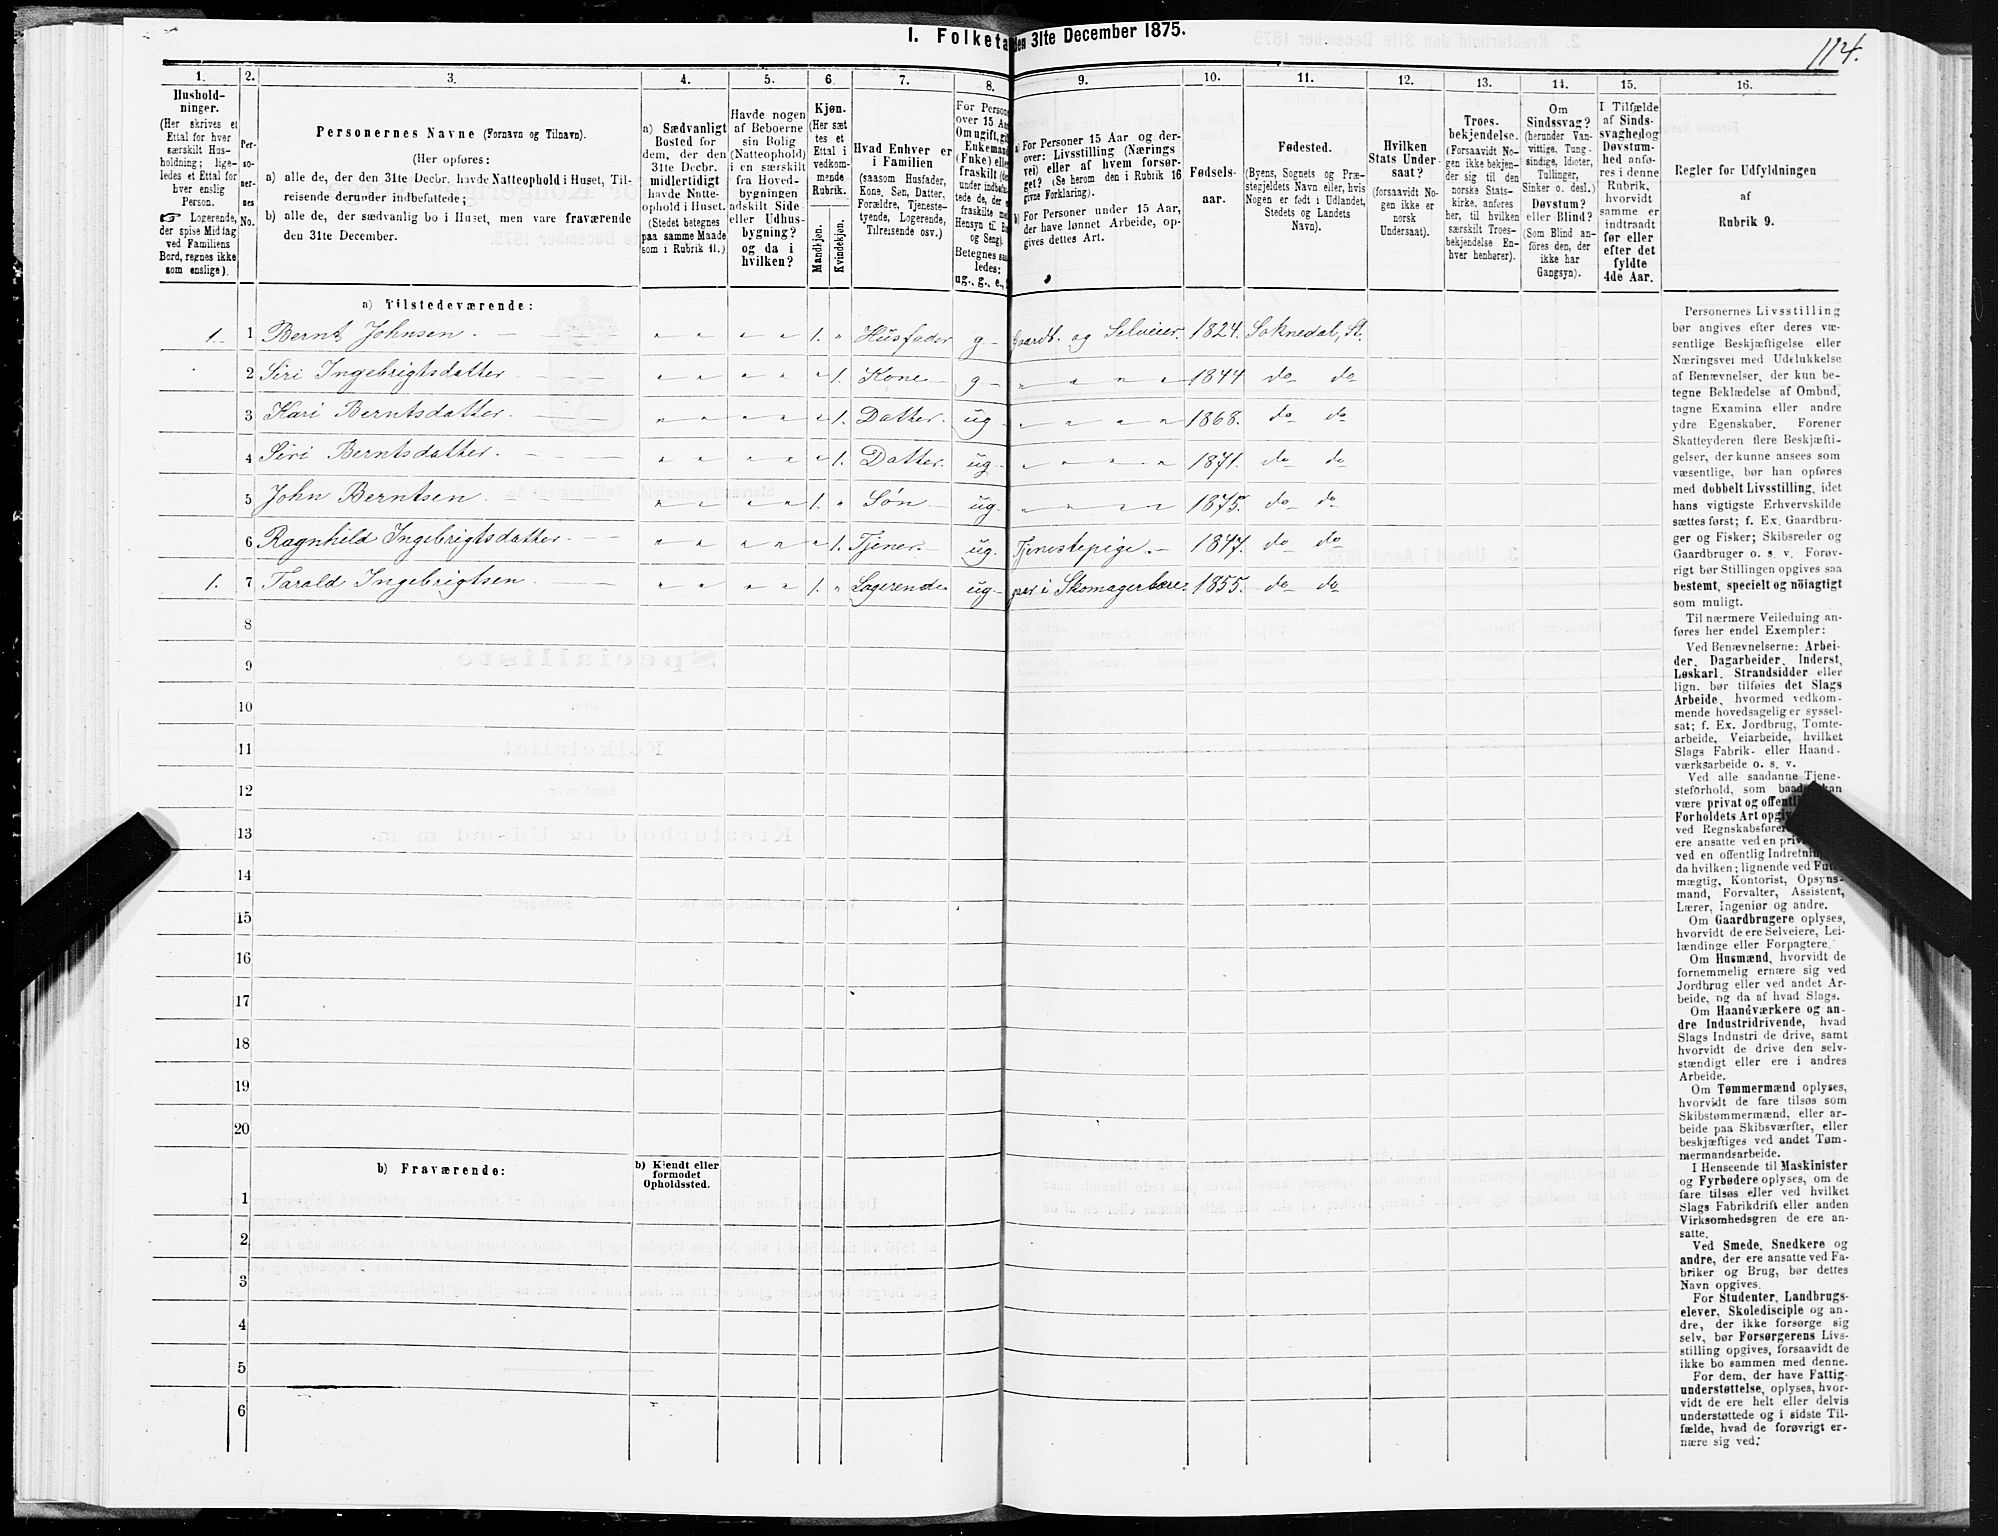 I. Folketa den 31te December 1875.
114.
1. 2. 3. 4. 5. 6. 7. 8. 9. 10. 11. 12. 13. 14. 15. 16.
Hushold-
ninger.
(Her skrives et
Ettal for hver
særskilt Hus-
holdning; lige-
ledes et Ettal for
hver enslig
Person.
☞ Logerende,
der spise Middag
ved Familiens
Bord, regnes ikke
som enslige).
Per-
so-
ner-
nes
No.
Personernes Navne (Fornavn og Tilnavn).
(Her opføres:
a) alle de, der den 31te Decbr. havde Natteophold i Huset, Til-
reisende derunder indbefattede;
b) alle de, der sædvanlig bo i Huset, men vare fraværende
den 31te December.
a) Sædvanligt
Bosted for
dem, der den
31te Decbr.
midlertidigt
havde Natte-
ophold i Huset.
(Stedet betegnes
paa samme Maade
som i Rubrik 11.)
Havde nogen
af Beboerne
sin Bolig
(Natteophold)
i en særskilt
fra Hoved-
bygningen
adskilt Side-
eller Udhus-
bygning?
og da i
hvilken?
Kjøn.
(Her sæt-
tes et
Ettal i
vedkom-
mende
Rubrik.
Mandkjøn.
Kvindekjøn.
Hvad Enhver er
i Familien
(saasom Husfader,
Kone, Søn, Datter,
Forældre, Tjeneste-
tyende, Logerende,
Tilreisende osv.)
For Person
over 15 Aar
Om ugift, gift
Enkemand
(Enke) elle
fraskilt (der
under indbefat-
tede de, der
fraskilte m
Hensyn til Bo
og Seng).
Betegnes saa
ledes:
ug., g., e.,
a) For Personer 15 Aar og der-
over: Livsstilling (Nærings
vei) eller af hvem forsør-
get? (Se herom den i Rubrik 16
givne Forklaring).
b) For Personer under 15 Aar,
der have lønnet Arbeide, op-
gives dettes Art.
Fødsels-
aar.
Fødested.
(Byens, Sognets og Præ-
stegjeldets Navn eller, hvis
Nogen er født i Udlandet,
Stedets og Landets
Navn).
Hvilken
Stats Under-
saat?
(forsaavidt No-
gen ikke er
norsk
Undersaat).
Troes-
bekjendelse.
(Forsaavidt No-
gen ikke bekjen-
der sig til den
norske Stats-
kirke, anføres
her, til hvilken
særskilt Troes-
bekjendelse En-
hver henhører).
Om
Sindssvag?
(herunder Van-
vittige, Tung-
sindige, Idioter,
Tullinger,
Sinker o. desl.)
Døvstum?
eller Blind?
(Som Blind an-
føres den, der
ikke har
Gangsyn).
I Tilfælde
af Sinds-
svaghed og
Døvstum-
hed anfø-
res i denne
Rubrik,
hvorvidt
samme er
indtraadt
før eller
efter det
fyldte
4de Aar.
Regler for Udfyldningen
af
Rubrik 9.
a) Tilstedeværende:
1. 1 Bernt Johnsen. 1. Husfader g Gaardb. og Selveier. 1824. Soknedal, St.
2 Siri Ingebrigtsdatter 1. Kone g. 1844 do do
3 Kari Berntsdatter. 1. Datter. ug 1868. do do
4 Siri Berntsdatter. 1. Datter. ug. 1871. do do
5 John Berntsen. 1. Søn ug. 1875. do do
6 Ragnhild Ingebrigtsdatter. 1. Tjener. ug. Tjenestepige. 1847. do do
1. 7 Tarald Ingebrigtsen 1. Logerende ug. i Skomagerlære. 1855. do do
8
9
10
11
12
13
14
15
16
17
18
19
20
b) Fraværende:
b) Kjendt eller
formodet
Opholdssted.
1
2
3
4
5
6
Personernes Livsstilling
bør angives efter deres væ-
sentlige Beskjæftigelse eller
Næringsvei med Udelukkelse
af Benævnelser, der kun be-
tegne Beklædelse af Ombud,
tagne Examina eller andre
ydre Egenskaber. Forener
Skatteyderen flere Beskjæfti-
gelser, der kunne ansees som
væsentlige, bør han opføres
med dobbelt Livsstilling, idet
hans vigtigste Erhvervskilde
sættes først; f. Ex. Gaardbru-
ger og Fisker; Skibsreder og
Gaardbruger o. s. v. Forøv-
rigt bør Stillingen opgives saa
bestemt, specielt og nöiagtigt
som muligt.
Til nærmere Veiledning an-
føres her endel Exempler:
Ved Benævnelserne: Arbei-
der, Dagarbeider, Inderst,
Løskarl, Strandsidder eller
lign. bør tilføies det Slags
Arbeide, hvormed vedkom-
mende hovedsagelig er syssel-
sat; f. Ex. Jordbrug, Tomte-
arbeide, Veiarbeide, hvilket
Slags Fabrik- eller Haand-
værksarbeide o. s. v.
Ved alle saadanne Tjene-
steforhold, som baade kan
være privat og offentli
Forholdets Art opgiv
ved Regnskabsfører
ere ansatte ved en priv
ved en offentlig Indretning
da hvilken; lignende ved Fuld-
mægtig, Kontorist, Opsyns-
mand, Forvalter, Assistent,
Lærer, Ingeniør og andre.
Om Gaardbrugere oplyses,
hvorvidt de ere Selveiere, Lei-
lændinge eller Forpagtere.
Om Husmænd, hvorvidt de
fornemmelig ernære sig ved
Jordbrug eller ved andet Ar-
beide, og da af hvad Slags.
Om Haandværkere og an-
dre Industridrivende, hvad
Slags Industri de drive, samt
hvorvidt de drive den selv-
stændigt eller ere i andres
Arbeide.
Om Tømmermænd oplyses,
hvorvidt de fare tilsøs som
Skibstømmermænd, eller ar-
beide paa Skibsværfter, eller
beskjæftiges ved andet Tøm-
mermandsarbeide.
I Henseende til Maskinister
og Fyrbødere oplyses, om de
fare tilsøs eller ved hvilket
Slags Fabrikdrift eller anden
Virksomhedsgren de ere an-
satte.
Ved Smede, Snedkere og
andre, der ere ansatte ved Fa-
briker og Brug, bør dettes
Navn opgives.
For Studenter, Landbrugs-
elever, Skoledisciple og an-
dre, der ikke forsørge sig
selv, bør Forsørgerens Livs-
stilling opgives, forsaavidt de
ikke bo sammen med denne.
For dem, der have Fattig-
understøttelse, oplyses, hvor-
vidt de ere helt eller delvis
understøttede og i sidste Til-
fælde, hvad de forøvrigt er-
nære sig ved.